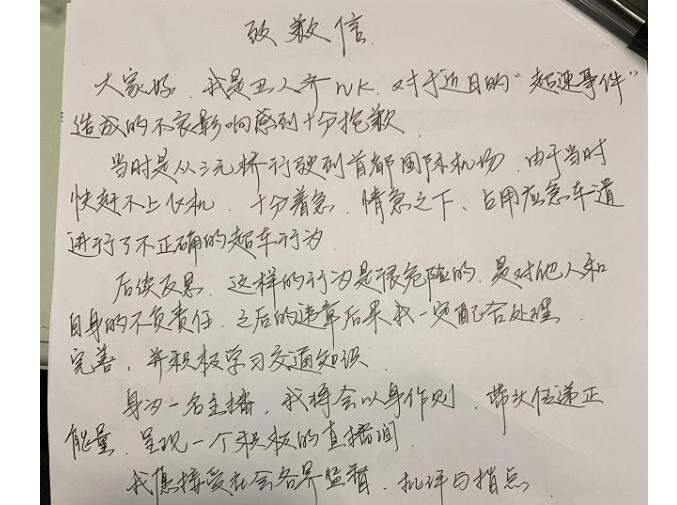 致歉信
大家好，我是丑人齐WK，对于近日的“超速事件”
造成的不良影响感到十分抱歉
当时是从三元桥行驶到首都国际机场，由于当时
快赶不上飞机，十分着急，情急之下，占用应急车道
进行了不正确的超车行为
后续反思，这样的行为是很危险的，是对他人和
自身的不负责任，之后的违章后果我一定配合处理
完善，并积极学习交通知识
身为一名主播，我将会以身作则，带头传递正
能量，呈现一个积极的直播间
我愿接受社会各界监督，批评与指点